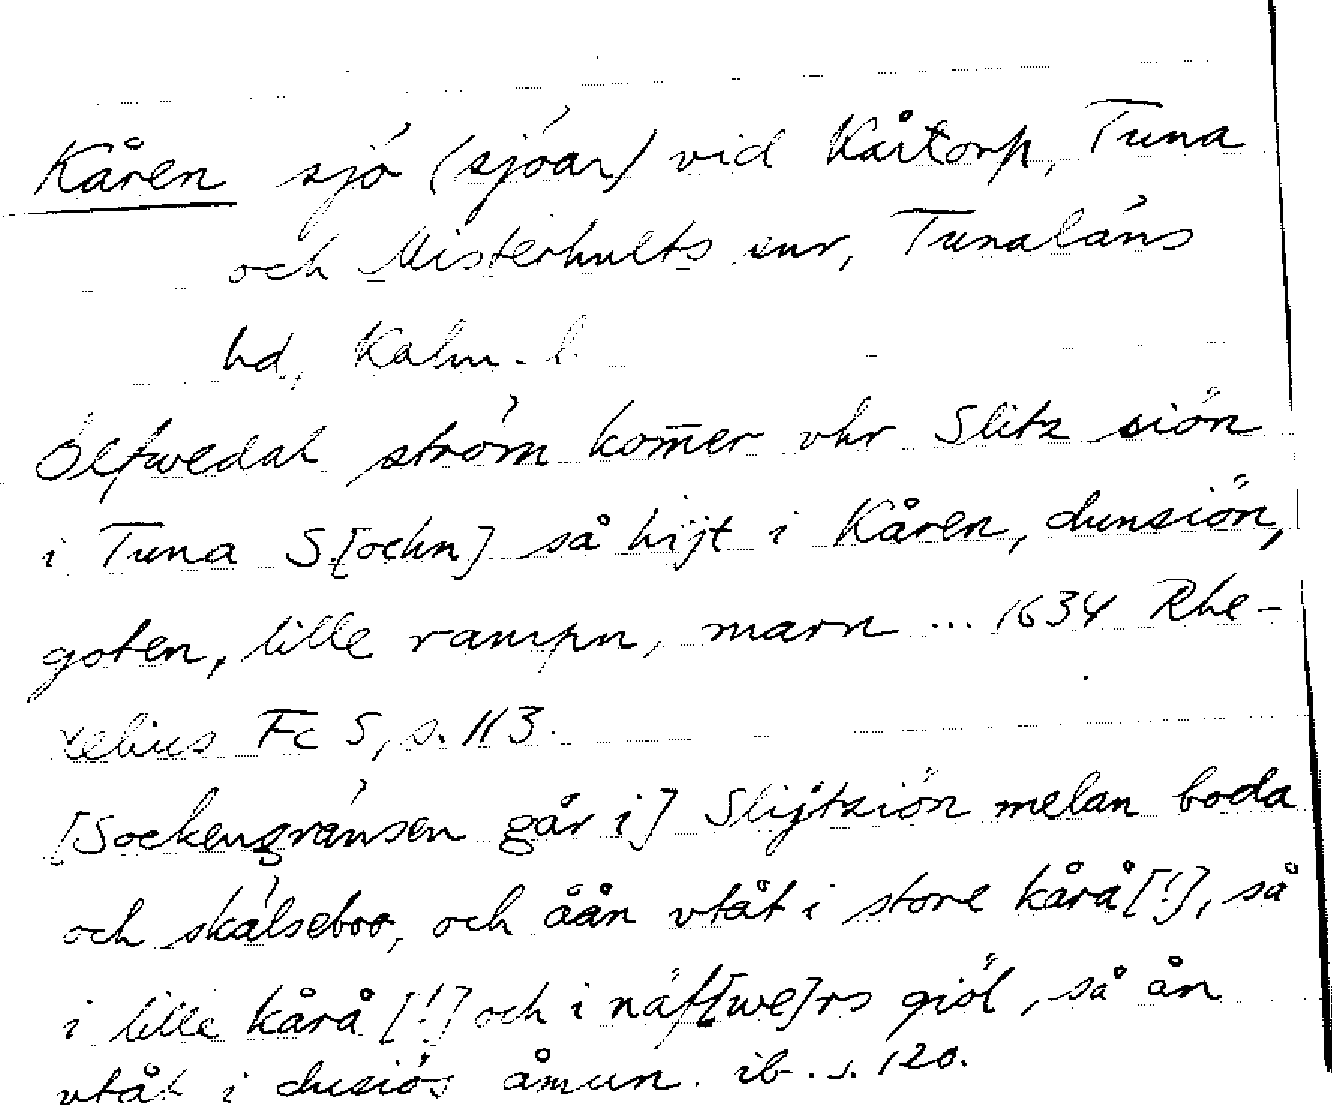 Kåren sjö (sjöar) vid Kårtorp, Tuna
och Misterhults snr, Tunaläns
hd, Kalm. l.
Ölfwedal ström kom̅er vhr Slitz siön
i Tuna S[ochn] så hijt i Kåren, dunsiön,
goten, lille rampn, marn ... 1634 Rhe-
zelius Fc 5, s. 113.
[Sockengränsen går i] Slijtziön melan boda
och skälseboo, och åån vtåt i store kårå[!], så
i lille kårå [!] och i näf[we]rs giöl, så ån
vtåt i dusiös åmun. ib. s. 120.